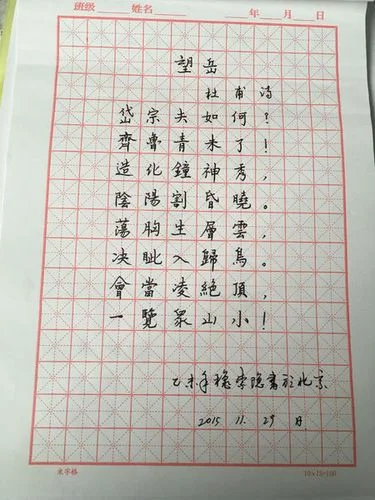 班级 姓名 年 月 日
望岳
杜甫诗
岱宗夫如何?
齊魯青未了!
造化鐘神秀,
陰陽割昏曉。
蕩胸生層雲,
决眦入歸鳥。
會當凌絕頂,
一覽衆山小!
乙未年穏李隐書於北京
2015 11. 29 日
米字格 10×15=150